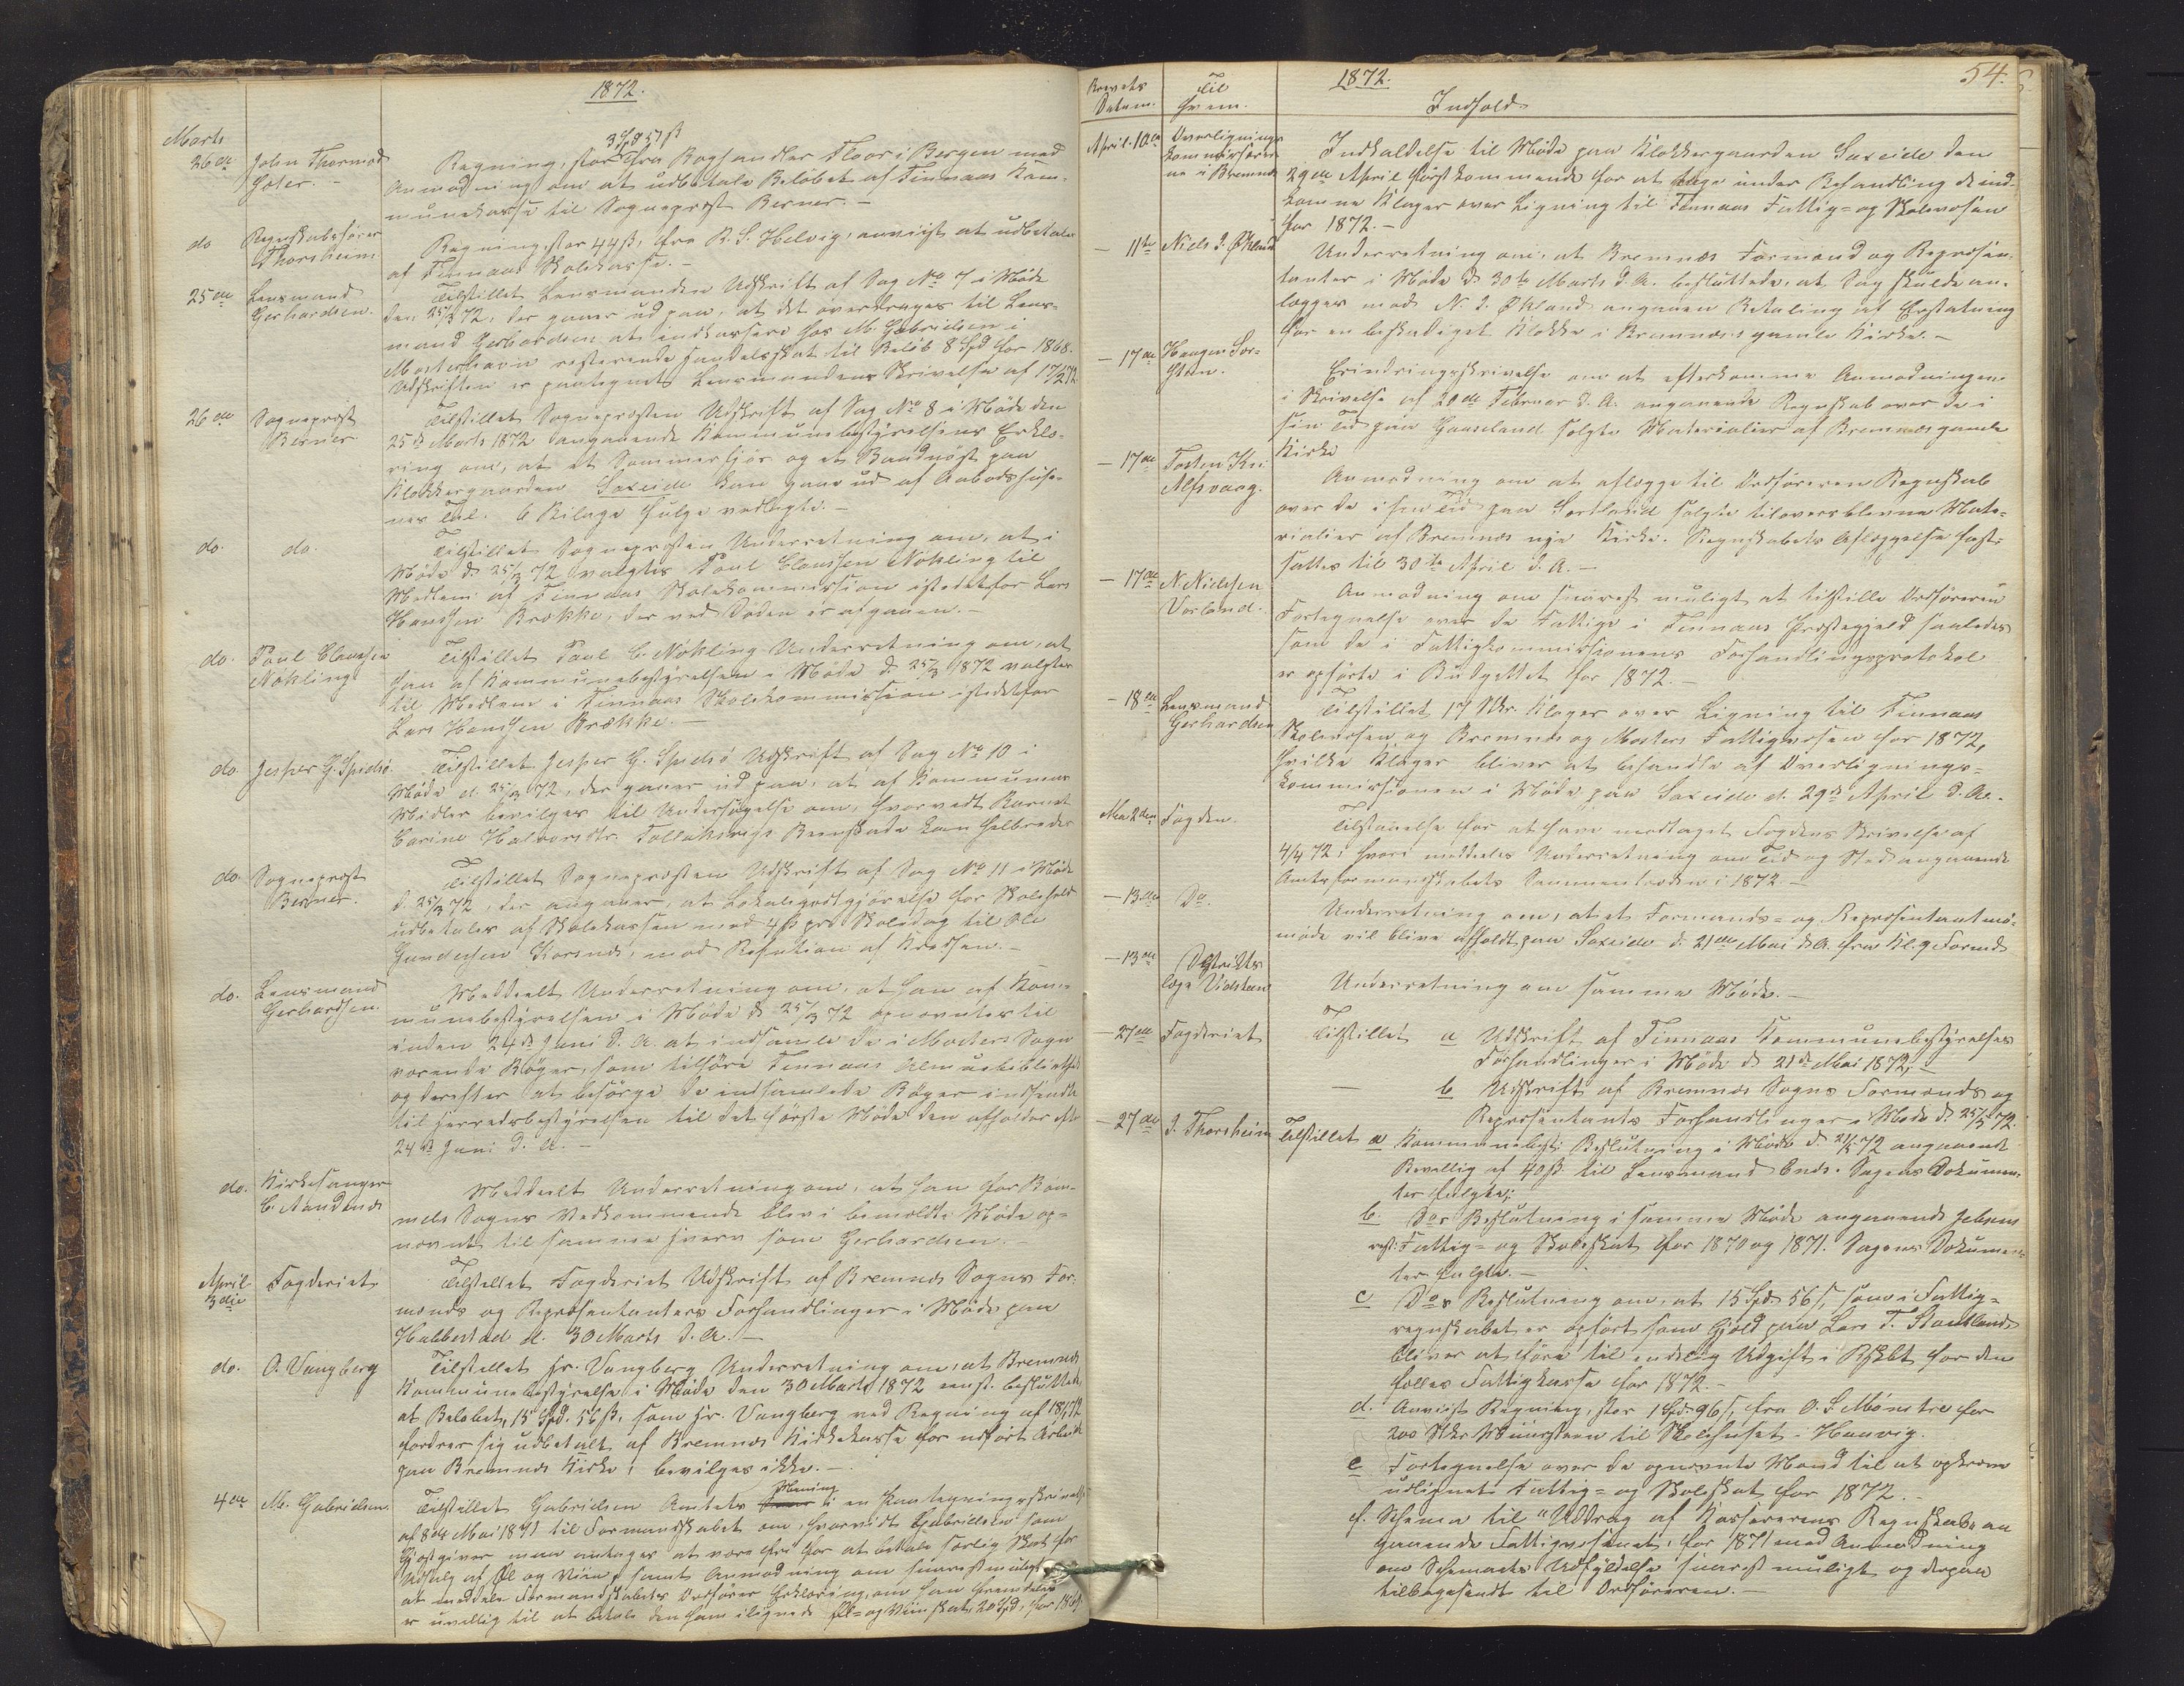 1872.
Marts
26de John Thormod
Hoter. –
3 Spd 51 ß
Regning, stor fra Boghandler Floor i Bergen med
Anmodning om at udbetale Beløbet af Finnaas Kom-
munekasse til Sogneprest Berner. –
do Regnskabsfører
Thorsheim
Regning, stor 44 ß, fra R. S. Helvig, anvist at udbetales
af Finnaas Skolekasse. –
25de Lensmand
Gerhardsen.
Tilstillet Lensmanden Udskrift af Sag No 7 i Møde
den 25/3 72, der gaaer ud paa, at det overdrages til Lens-
mand Gerhardsen at indkassere hos M. Gabrielsen i
Mosterhavn resterende Handelsskat til Beløb 8 Spd for 1868.
Udskriften er paategnet Lensmandens Skrivelse af 17/2 72.
26de Sogneprest
Berner
Tilstillet Sognepresten Udskrift af Sag No 8 i Møde den
25de Marts 1872 angaaende Kommunebestyrelsens Erklæ-
ring om, at et Sommerfjøs og et Baadnøst paa
Klokkergaarden Saxeide kan gaae ud af Aabodshuse-
nes Tal. 6 Bilage fulge vedlagte. –
do. do.
Tilstillet Sognepresten Underretning om, at i
Møde d. 25/3 72 valgtes Poul Clausen Nøkling til
Medlem af Finnaas Skolekommission istedetfor Lars
Hansen Brække, der ved Døden er afgaaen. –
do. Poul Clausen
Nøkling
Tilstillet Poul C. Nøkling Underretning om, at
han af Kommunebestyrelsen i Møde d. 25/3 1872 valgtes
til Medlem i Finnaas Skolekommission istedetfor
Lars Hansen Brække. –
do. Jesper G. Spidsø.
Tilstillet Jesper G. Spidsø Udskrift af Sag No 10 i
Møde d. 25/3 72, der gaaer ud paa, at af Kommunens
Midler bevilges til Undersøgelse om, hvorvidt Barnet
Carine Halvorsdtr. Beenskade kan helbredes
do. Sogneprest
Berner.
Tilstillet Sognepresten Udskrift af Sag No 11 i Møde
d. 25/3 72, der angaaer, at Lokalegodtgjørelse for Skolehold
udbetales af Skolekassen med 4 ß pro Skoledag til Ole
Gundersen Korsnæs, mod Refusion af Kredsen. –
do. Lensmand
Gerhardsen.
Meddeelt Underretning om, at han af Kom-
munebestyrelsen i Møde d. 25/3 72 opnævntes til
inden 24de Juni d. A. at indsamle de i Mosters Sogn
værende Bøger, som tilhøre Finnaas Almuebibliothek
og derefter at besørge de indsamlede Bøger indsendt
til Herredsbestyrelsen til det første Møde den afholder efter
24de Juni d. A. –
do. Kirkesanger
C. Aandenæs
Meddeelt Underretning om, at han for Bøm-
mels Sogns Vedkommende blev i bemeldte Møde op-
nævnt til samme Hverv som Gerhardsen. –
April
3die Fogderiet
Tilstillet Fogderiet Udskrift af Bremnæs Sogns For-
mænds og Repræsentanters Forhandlinger i Møde paa
Hallerstad d. 30 Marts d. A. –
do. O. Vangberg
Tilstillet Hr. Vangberg Underretning om, at Bremnæs
Kommunebestyrelse i Møde den 30 Marts 1872 eenst. besluttede
at Beløbet, 15 Spd. 56 ß, som Hr. Vangberg ved Regning af 18/1 72
fordrer sig udbetalt af Bremnæs Kirkekasse for udført Arbeide
paa Bremnæs Kirke, bevilges ikke. –
4de M. Gabrielsen.
Mening
Tilstillet Gabrielsen Amtets i en Paategningsskrivelse
af 8de Mai 1871 til Formandskabet om, hvorvidt Gabrielsen som
Gjestgiver man antages at være fri for at betale særlig Skat for
Udsalg af Øl og Viin, samt Anmodning om snarest muligt
at meddele Formandskabets Ordfører Erklæring om han fremdeles
er uvillig til at betale den ham ilignede Øl- og Viinskat, 20 Spd, for 1869
Brevets
Datum.
Til
Hvem.
1872.
Indhold
54.
April 10de Overlignings
kommissærer
ne i Bremnæs
Indkaldelse til Møde paa Klokkergaarden Saxeide den
29de April førstkommende for at tage under Behandling de ind-
komne Klager over Ligning til Finnaas Fattig- og Skolevæsen
for 1872. –
– 11te Niels J. Økland
Underretning om, at Bremnæs Formænd og Repræsen-
tanter i Møde d. 30te Marts d. A. besluttede, at Sag skulde an-
lægges mod N. J. Økland angaaen Betaling af Erstatning
for en beskadiget Klokke i Bremnæs gamle Kirke. –
– 17de Haagen Sør-
Erindringsskrivelse om at efterkomme Anmodningen
i Skrivelse af 20de Februar d. A. angaaende Regnskab over de i
sin Tid paa Gaaseland solgte Materialier af Bremnæs gamle
Kirke
– 17de Tosten Kn.
Alfsvaag.
Anmodning om at aflægge til Ordføreren Regnskab
over de i sin Tid paa Sortland solgte tiloversblevne Mate-
rialier af Bremnæs nye Kirke. Regnskabets Aflæggelse fast-
sattes til 30te April d. A. –
– 17de N. Nielsen
Vorland.
Anmodning om snarest muligt at tilstille Ordføreren
Fortegnelse over de Fattige i Finnaas Prestegjeld saaledes
som de i Fattigkommissionens Forhandlingsprotokol
er opførte i Budgettet for 1872. –
– 18de Lensmand
Gerhardsen
Tilstillet 17 Stkr. Klager over Ligning til Finnaas
Skolevæsen og Bremnæs og Mosters Fattigvæsen for 1872,
hvilke Klager bliver at behandle af Overlignings-
kommissionen i Møde paa Saxeide d. 29de April d. A. –
Mai 2den Fogden.
Tilstaaelse for at have modtaget Fogdens Skrivelse af
4/4 72, hvori meddeeles Underretning om Tid og Sted angaaende
Amtsformandskabets Sammentræden i 1872. –
– 13de Do.
Underretning om, at et Formands- og Repræsentantmø-
møde vil blive afholdt paa Saxeide d. 21de Mai d. A. fra Kl. 9 Formd
– 13de Distrikts
læge Vidsteen
Underretning om samme Møde. –
– 27de Fogderiet
Tilstillet a Udskrift af Finnaas Kommunebestyrelses
Forhandlinger i Møde d. 21de Mai 1872, –
– b Udskrift af Bremnæs Sogns Formænds og
Repræsentants Forhandlinger i Møde d. 25/5 72.
– 27de J. Thorsheim
Tilstillet a Kommunebest. Beslutning i Møde d. 21/5 72 angaaende
Bevillig af 40 ß til Lensmand Sagens Dokumen-
ter fulgte;
b. Dos Beslutning i samme Møde angaaende Jebsens
rest. Fattig- og Skoleskat for 1870 og 1871. Sagens Dokumen-
ter fulgte. –
c Dos Beslutning om, at 15 Spd. 56 ß, som i Fattig-
regnskabet er opført som Gjæld paa Lars T. Stautland
bliver at føre til endelig Udgift i Rgskbt for den
fælles Fattigkasse for 1872. –
d. Anvist Regning, stor 1 Spd. 96 ß, fra O. S. Mønstre for
200 Stkr Muursteen til Skolehuset i Haavig.
e Fortegnelse over de opnævnte Mænd til at opkræve
udlignet Fattig- og Skoleskat for 1872. –
f. Schema til "Uddrag af Kassererens Regnskab an
gaaende Fattigvæsenet" for 1871 med Anmodning
om Schemaets Udfyldelse snarest muligt og derpaa
tilbagesendt til Ordføreren. –